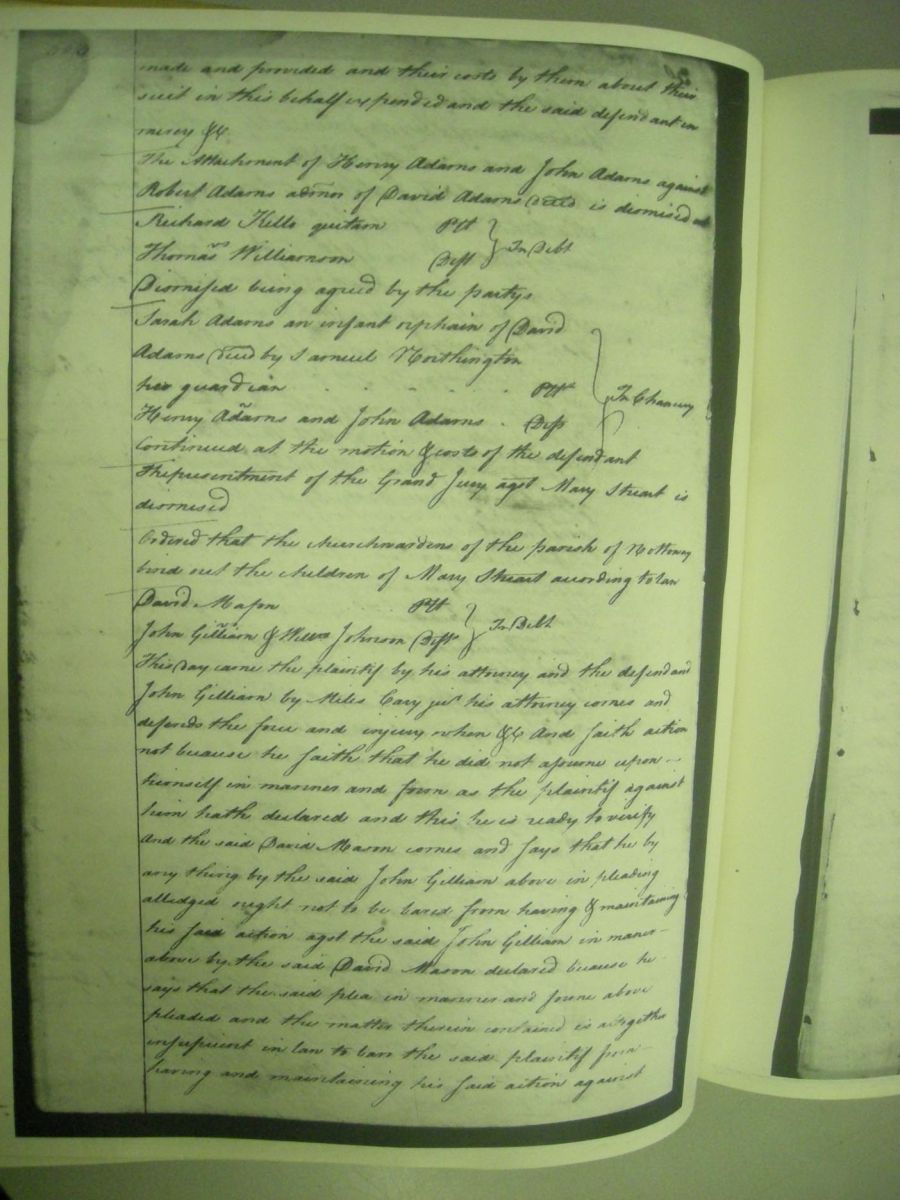 made and provided and their costs by them about their
suit in this behalf expended and the said defendant in
mercy &c
The Attachment of Henry Adams and John Adams against
Robert Adams admor of David Adams decd is dismised
Richard Kello quitam Plt
Thomas Williamson Deft } In Debt
Dismissed being agreed by the partys
Sarah Adams an infant orphain of David
Adams decd by Samuel Northington
her guardian . . . . . Plt
Henry Adams and John Adams . Defts } In Chancery
Continued at the motion & costs of the defendant
The presentment of the Grand Jury agst Mary Stuart is
dismised
Ordered that the churchwardens of the parish of Nottoway
bind out the children of Mary Stuart according to law
David Mason Plt
John Gilliam & Willm Johnson Defts } In Debt
This day came the plaintif by his attorney and the defendand
John Gilliam by Miles Cary jur his attorney comes and
defends the force and injury when &c And saith action
not because he saith that he did not assume upon
himself in manner and form as the plaintif against
him hath declared and this he is ready to verify
And the said David Mason comes and says that he by
any thing by the said John Gilliam above in pleading
alledged ought not to be bared from having & maintaining
his said action agst the said John Gilliam in maner
above by the said David Mason declared because he
says that the said plea in manner and forme above
pleaded and the matter therein contained is altogether
in law to barr the said plaintif from
having and maintaining his said action against